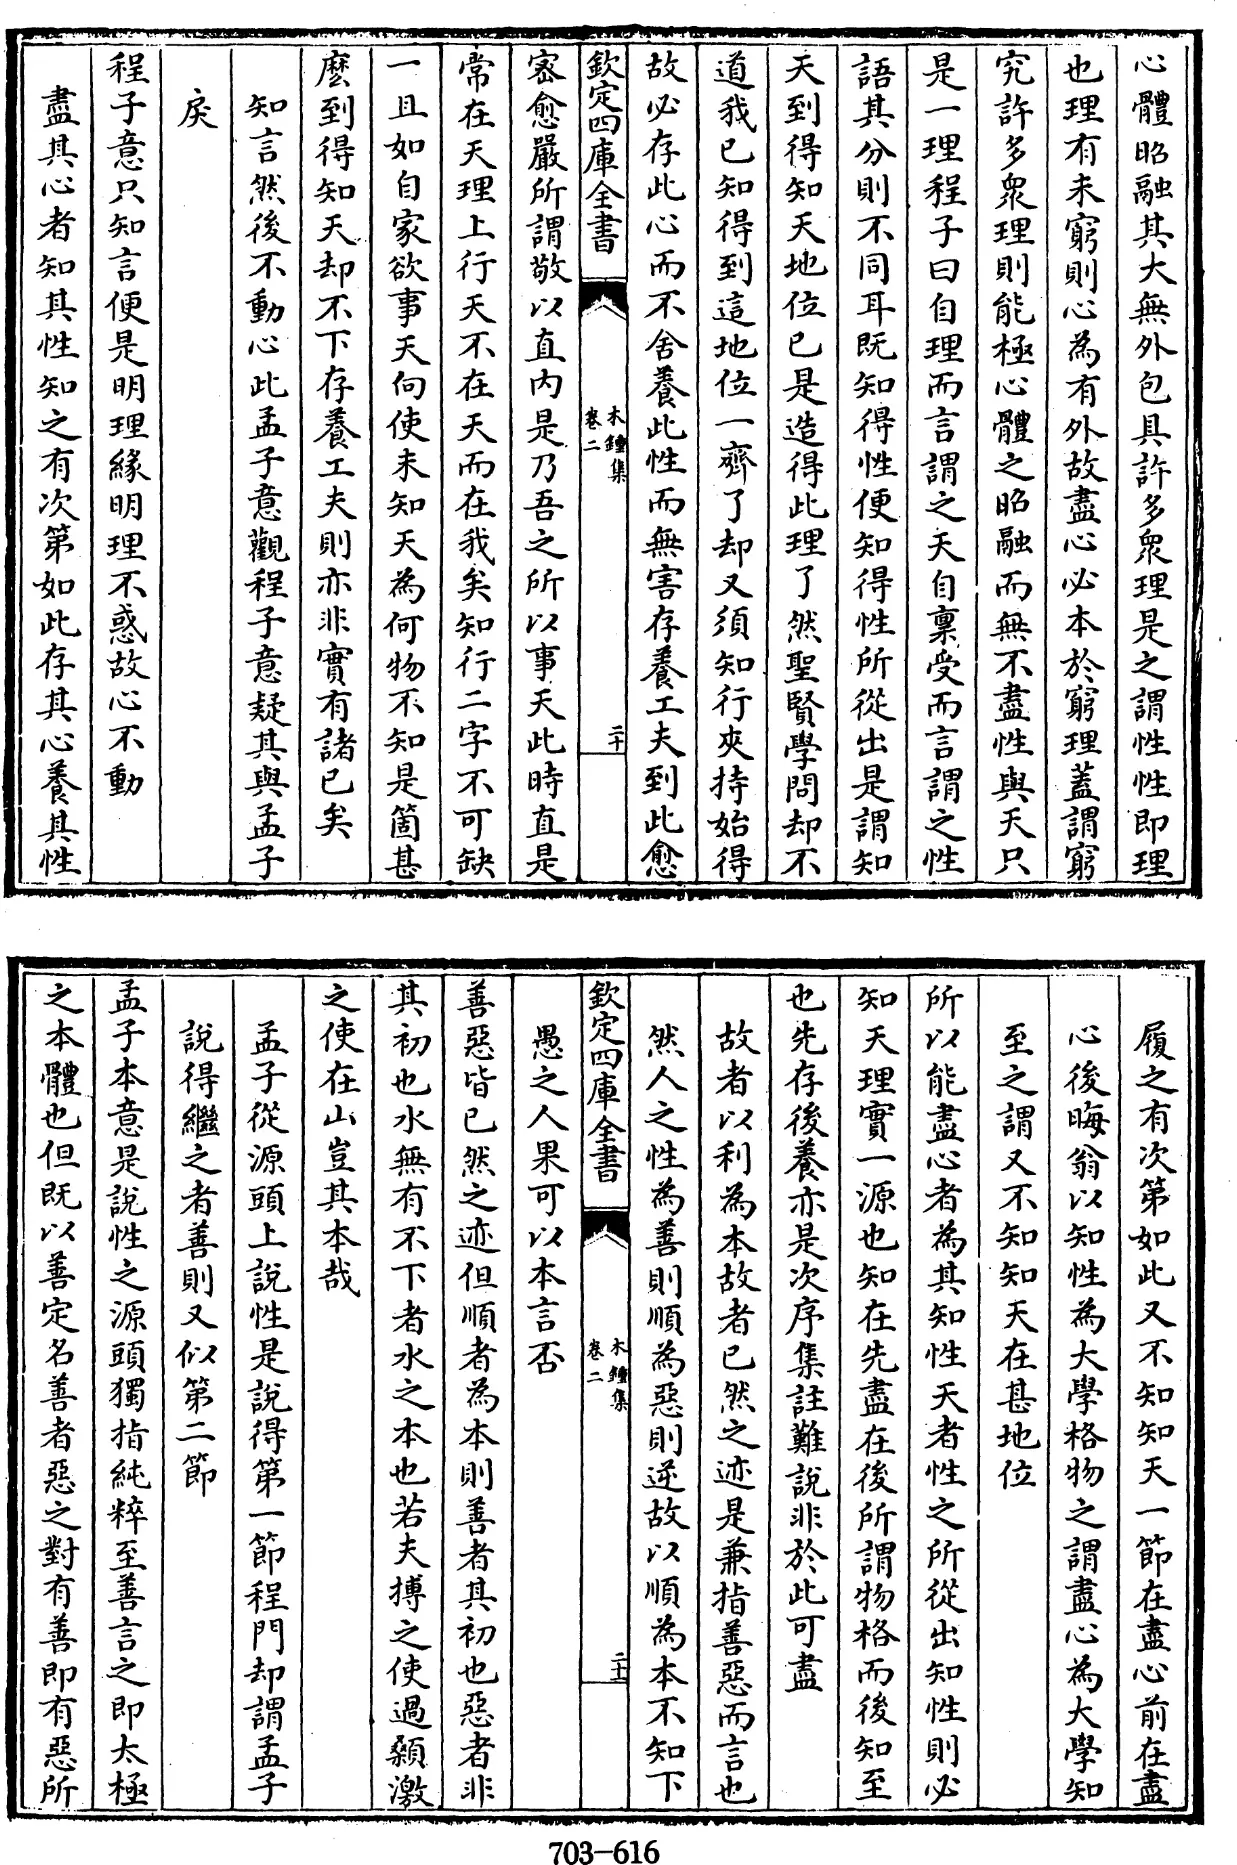 心體昭融其大無外包具許多衆理是之謂性性即理
也理有未窮則心為有外故盡心必本於窮理蓋謂窮
究許多衆理則能極心體之昭融而無不盡性與天只
是一理程子曰自理而言謂之天自稟受而言謂之性
語其分則不同耳既知得性便知得性所從出是謂知
天到得知天地位已是造得此理了然聖賢學問却不
道我已知得到這地位一齊了却又須知行夾持始得
故必存此心而不舍養此性而無害存養工夫到此愈
欽定四庫全書
木鐘集
卷二
二十
宻愈嚴所謂敬以直内是乃吾之所以事天此時直是
常在天理上行天不在天而在我矣知行二字不可缺
一且如自家欲事天向使未知天為何物不知是箇甚
麽到得知天却不下存養工夫則亦非實有諸已矣
知言然後不動心此孟子意觀程子意疑其與孟子
戾
程子意只知言便是明理緣明理不惑故心不動
盡其心者知其性知之有次第如此存其心養其性
履之有次第如此又不知知天一節在盡心前在盡
心後晦翁以知性為大學格物之謂盡心為大學知
至之謂又不知知天在甚地位
所以能盡心者為其知性天者性之所從出知性則必
知天理實一源也知在先盡在後所謂物格而後知至
也先存後養亦是次序集註難說非於此可盡
故者以利為本故者已然之迹是兼指善惡而言也
然人之性為善則順為惡則逆故以順為本不知下
欽定四庫全書
木鐘集
卷二
二十一
愚之人果可以本言否
善惡皆已然之迹但順者為本則善者其初也惡者非
其初也水無有不下者水之本也若夫搏之使過顙激
之使在山豈其本哉
孟子從源頭上說性是說得第一節程門却謂孟子
說得繼之者善則又似第二節
孟子本意是說性之源頭獨指純粹至善言之即太極
之本體也但既以善定名善者惡之對有善即有惡所
703-616